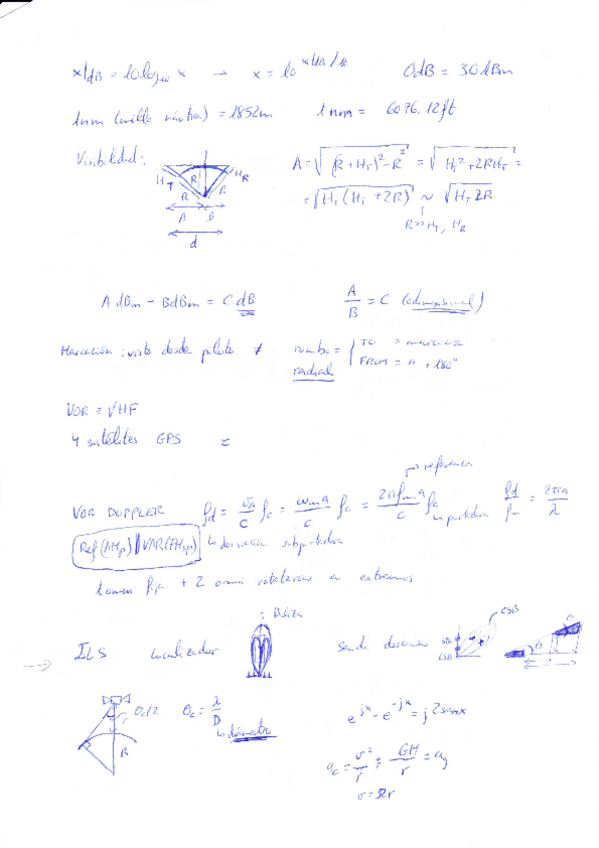 x|dB = 10 log10 x → x = 10^(x|dB/10) 0dB = 30dBm
1nm (milla náutica) = 1852m 1nm = 6076.12ft
Visibilidad:
HT R R R HR
A B
d
A = √((R+HT)² - R²) = √(HT² + 2RHT) =
= √(HT(HT + 2R)) ~ √(HT 2R)
R>>HT, HR
A dBm - B dBm = C dB A/B = C (adimensional)
Marcación: visto desde piloto ≠ rumbo = { TO = marcación
radial FROM = " + 180°
VOR = VHF
4 satélites GPS =
→ referencia
VOR DOPPLER fd = vR/c fc = ωm a/c fc = 2π fm a/c fc fd/fm = 2πa/λ
↳ portadora
Ref(AMp) || VAR(FMsp) ↳ desviación subportadora
1 omni fija + 2 omni rotatorias a extremos
: Baliza
CSB
→ ILS Localizador Senda descenso
θc/2 θc = λ/D
↳ diámetro
R
e^jx - e^-jx = j2senx
ac = v²/r ; GM/r = ag
v = Ωr